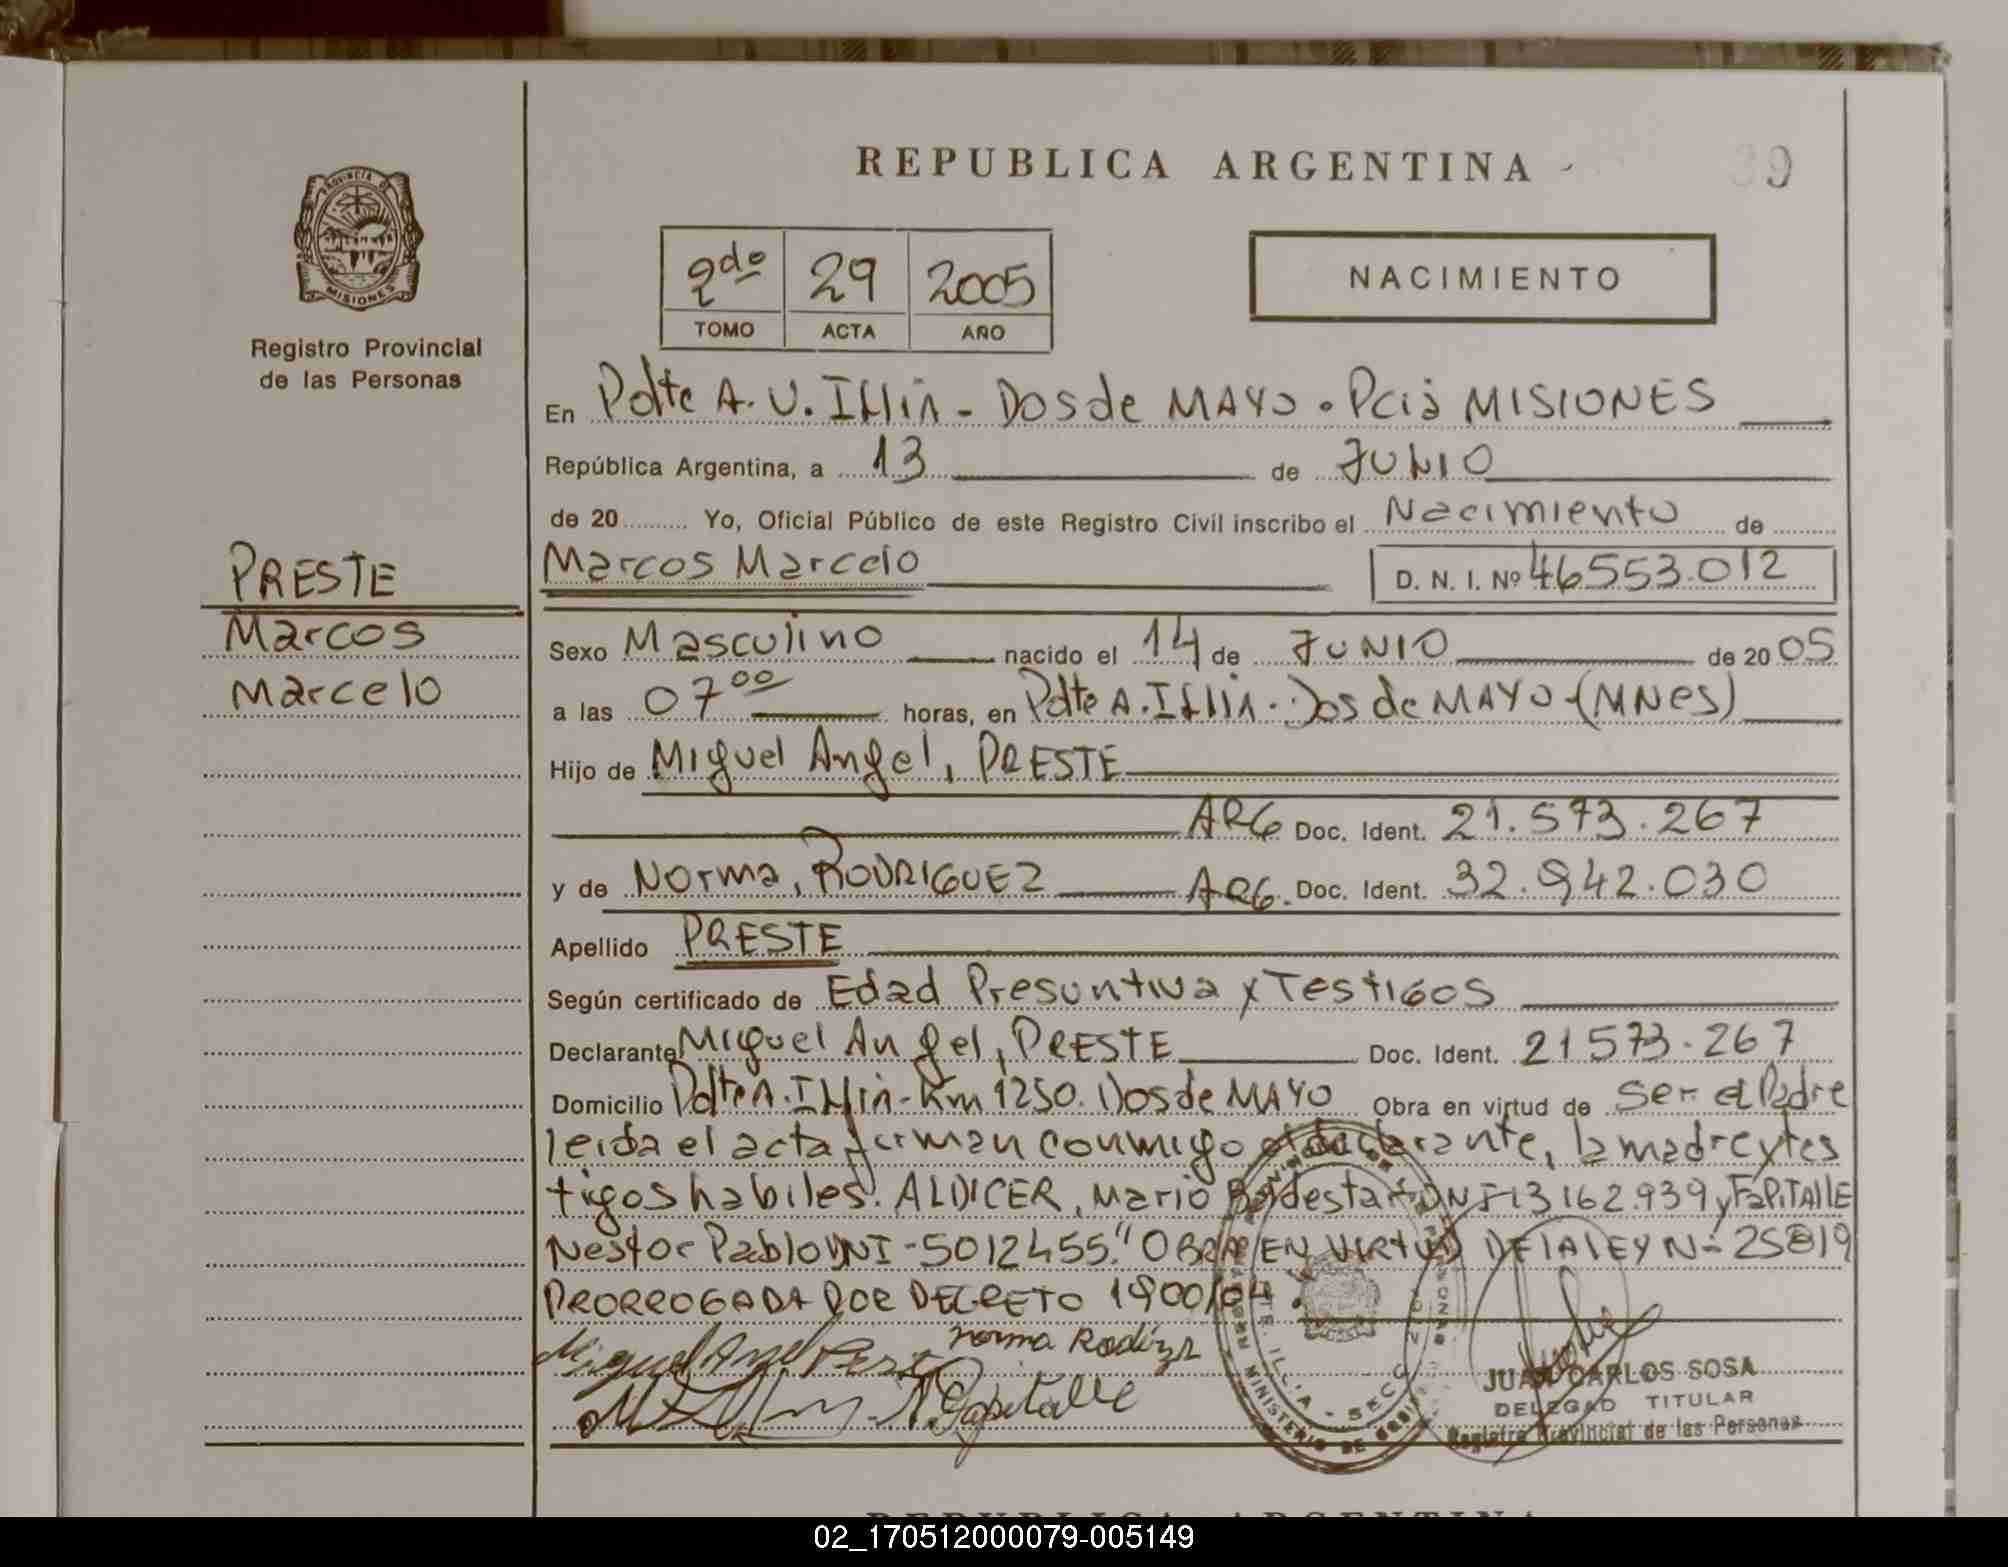 REPUBLICA ARGENTINA
39
PROVINCIA DE
MISIONES
Registro Provincial
de las Personas
2do 29 2005
TOMO ACTA AÑO
NACIMIENTO
En Pdte A. U. Illia - Dos de MAYO. Pcia MISIONES
República Argentina, a 13 de JUNIO
de 20 Yo, Oficial Público de este Registro Civil inscribo el Nacimiento de
PRESTE
Marcos
Marcelo
Marcos Marcelo D. N. I. Nº 46553.012
Sexo Masculino nacido el 14 de JUNIO de 2005
a las 07 00 horas, en Pdte A. Illia. Dos de MAYO-(MNes)
Hijo de Miguel Angel, PRESTE
ARG Doc. Ident. 21.573.267
y de Norma, RODRIGUEZ ARG. Doc. Ident. 32.942.030
Apellido PRESTE
Según certificado de Edad Presuntiva y Testigos
Declarante Miguel Angel, PRESTE Doc. Ident. 21573.267
Domicilio Pdte A. Illia-Km 1250. Dos de MAYO Obra en virtud de ser el Padre
leida el acta firman conmigo el declarante, la madre y tes
tigos habiles. ALDICER, Mario DNI-13162.939 y
Nestor Pablo DNI-5012455." OBRA EN VIRTUD DE LA LEY Nº 25819
PRORROGADA POR DECRETO 1900/04.
Miguel Angel Preste
norma
JUAN CARLOS SOSA
DELEGADO TITULAR
Registro Provincial de las Personas
REPUBLICA ARGENTINA
02_170512000079-005149